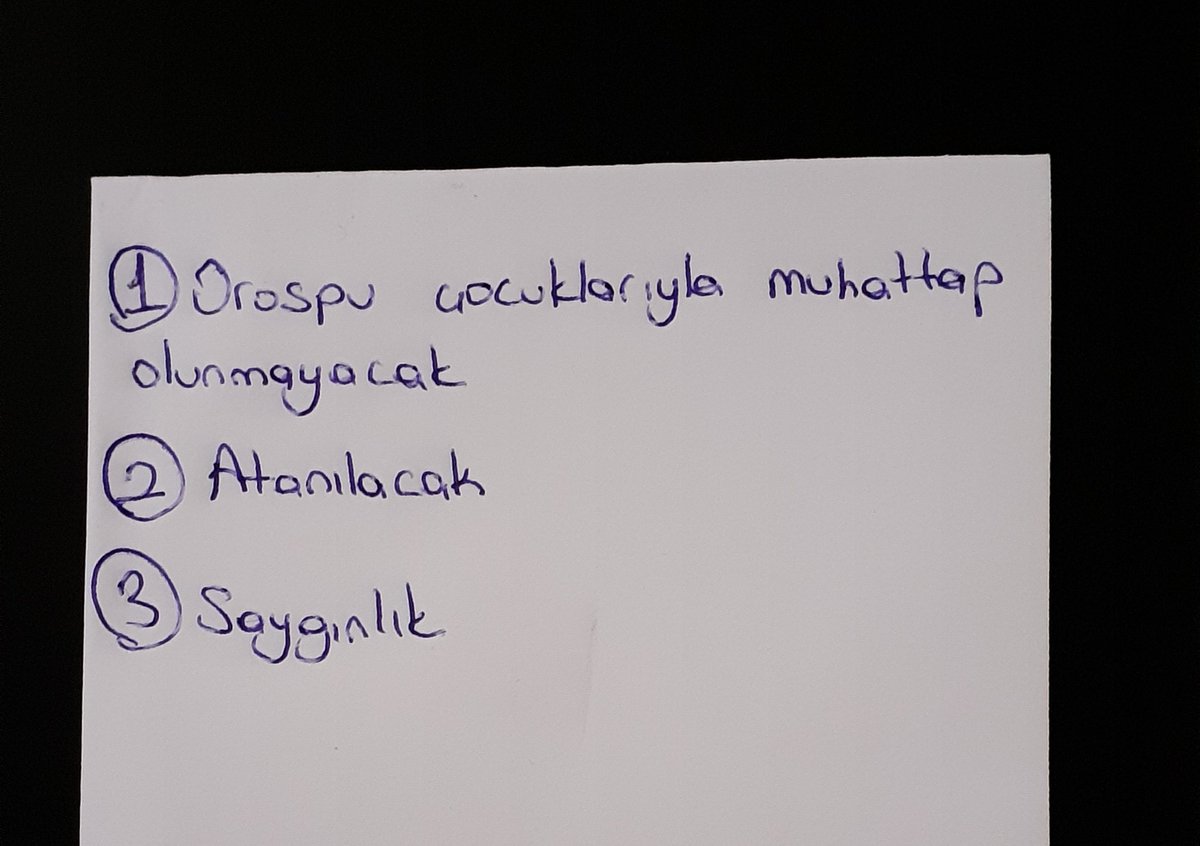 1 Orospu çocuklarıyla muhattap
olunmayacak
2 Atanılacak
3 Saygınlık